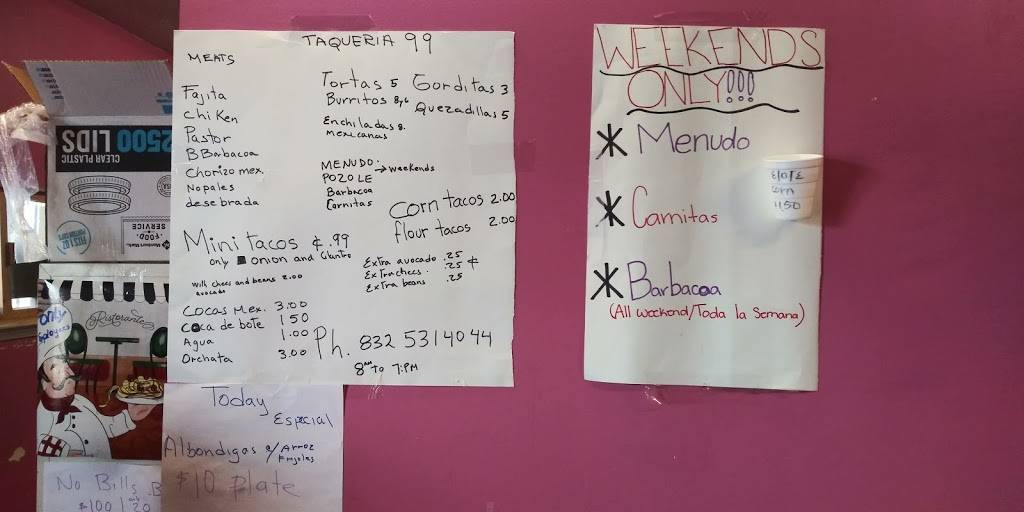 TAQUERIA 99
MEATS
Fajita
chiken
Pastor
BBarbacoa
Chorizo mex.
Nopales
desebrada
Tortas 5 Gorditas 3
Burritos 8y6 Quezadillas 5
Enchiladas 8.
mexicanas
MENUDO.
POZOLE → weekends
Barbacoa
Carnitas
corn tacos 2.00
flour tacos 2.00
Mini tacos ¢.99
only onion and cilantro
with chees and beans 2.00
avocado
Extra avocado .25
Extra chees. .25 ¢
Extra beans .25
COCAS Mex. 3.00
Coca de bote 1 50
Agua 1.00
Orchata 3.00
Ph. 832 531 40 44
8am to 7:PM
Today
Especial
Albondigas c/ Arroz
Frijoles
$10 plate
No Bills
$100
WEEKENDS
ONLY!!!
* Menudo
* Carnitas
* Barbacoa
(All weekend/Toda la Semana)
2500 LIDS
CLEAR PLASTIC
Member's Mark
FOOD
SERVICE
Ristorante
only